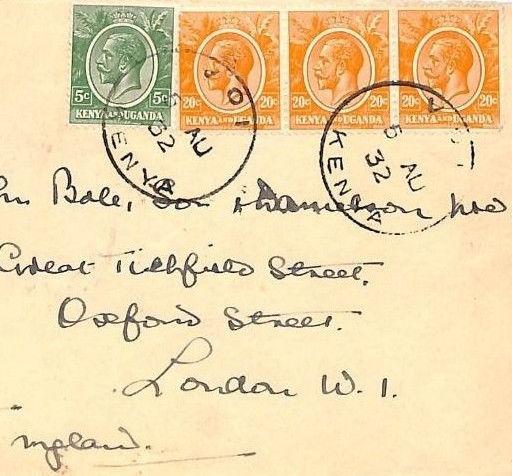 5c 5c 20c 20c 20c 20c 20c 20c
KENYA AND UGANDA KENYA AND UGANDA KENYA AND UGANDA KENYA AND UGANDA
JOI
5 AU
32
KENYA
5 AU
32
KENYA
Bale, Son & Danielsson
Great Titchfield Street.
Oxford Street.
London W.1.
England.